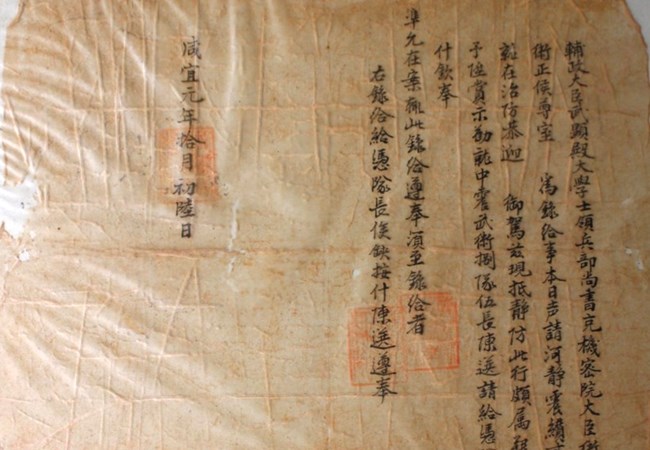 輔政大臣武顯殿大學士領兵部尚書充機密院大臣
衛正侯尊室 為錄給事本日步請河靜
在治防恭迎 御駕茲現抵靜防此行頗屬
予陞賞示勸就中震武衛捌隊伍長陳送請給憑
什欽奉
準允在案輒此錄給遵奉須至錄給者
右錄給給憑隊長侯缺按什陳送遵奉
咸宜元年拾月初陸日